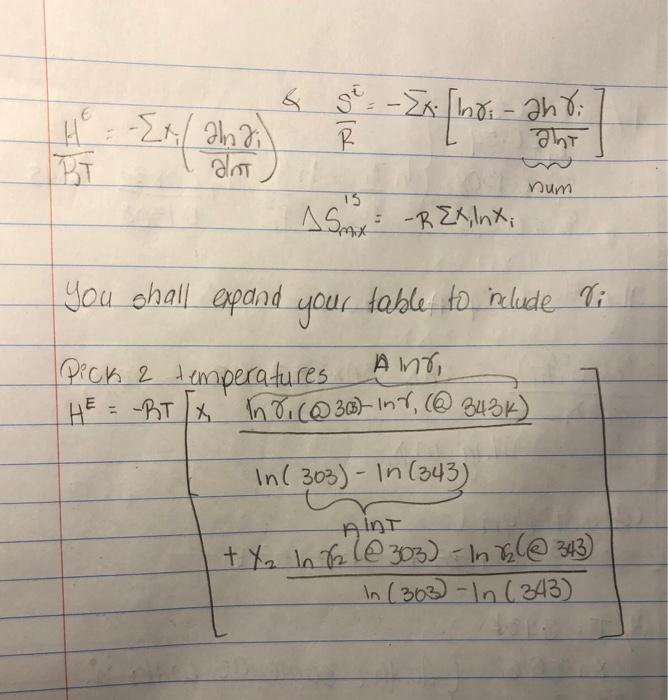 H^E/RT = -Σx_i (∂lnγ_i/∂lnT) & S^E/R = -Σx_i [lnγ_i - ∂lnγ_i/∂lnT]
num
ΔS^is_mix = -R Σx_i lnx_i
You shall expand your table to include γ_i
Pick 2 temperatures Δ lnγ_1
H^E = -RT [x_1 (ln γ_1 (@ 303) - ln γ_1 (@ 343K))
ln(303) - ln(343)
Δ lnT
+ x_2 (ln γ_2 (@ 303) - ln γ_2 (@ 343))
ln(303) - ln(343)]